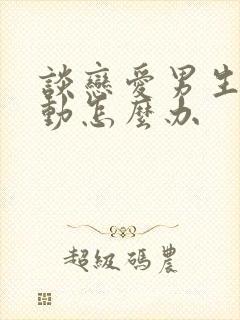 談戀愛男生
動怎麼办
超級碼農